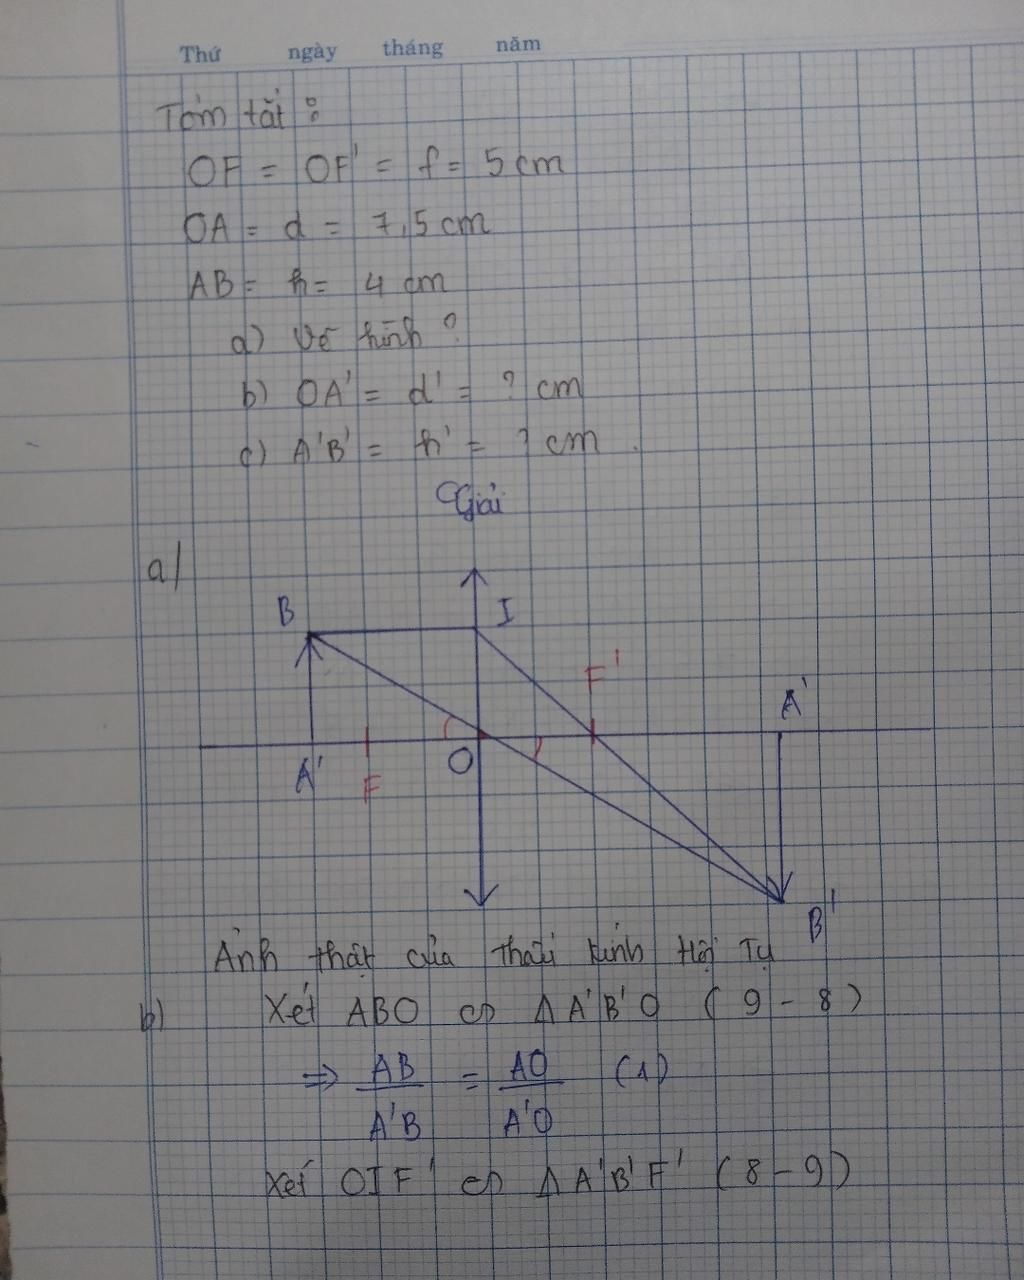 Thứ ngày tháng năm
Tóm tắt :
OF = OF' = f = 5 cm
OA = d = 7,5 cm
AB = h = 4 cm
a) Vẽ hình ?
b) OA' = d' = ? cm
c) A'B' = h' = ? cm
Giải
a/
B I
F' A'
A' F O
B'
Ảnh thật của thấu kính Hội Tụ
b) Xét ABO ∽ Δ A'B'O ( 9 - 8 )
⇒ AB / A'B = AO / A'O (1)
Xét OIF' ∽ Δ A'B'F' ( 8 - 9 )